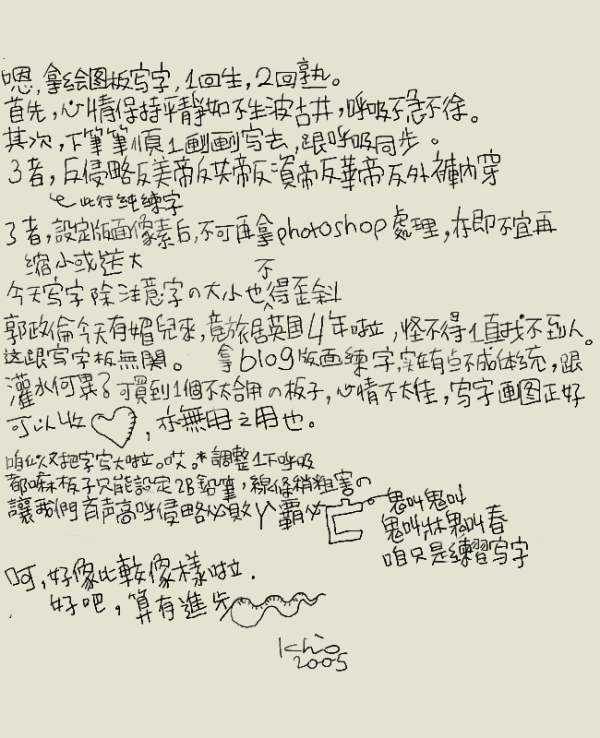 嗯,拿绘图板写字,1回生,2回熟。
首先,心情保持平靜如不生波古井,呼吸不急不徐。
其次,下筆筆順1劃劃写去,跟呼吸同步。
3者,反侵略反美帝反共帝反資帝反華帝反外褲內穿
此行純練字
3者,設定版面像素后,不可再拿photoshop處理,亦即不宜再
縮小或送大
不
今天写字除注意字の大小也得歪斜
郭政倫今天有媚兒來,竟旅居英国4年啦,怪不得1直找不到人。
这跟写字板無関。 拿blog版面練字,实在有点不成体统,跟
灌水何異?可買到1個不太合用の板子,心情不太佳,写字画图正好
可以收 ,亦無用之用也。
咱以又把字写大啦。哎。*調整1下呼吸
都嘛板子只能設定2B鉛筆,線條稍粗害の
讓我們齐声高呼侵略必敗丫霸必
鬼叫鬼叫
鬼叫鬼叫春
咱只是練習写字
呵,好像比較像樣啦.
好吧,算有進步
Khó
2005